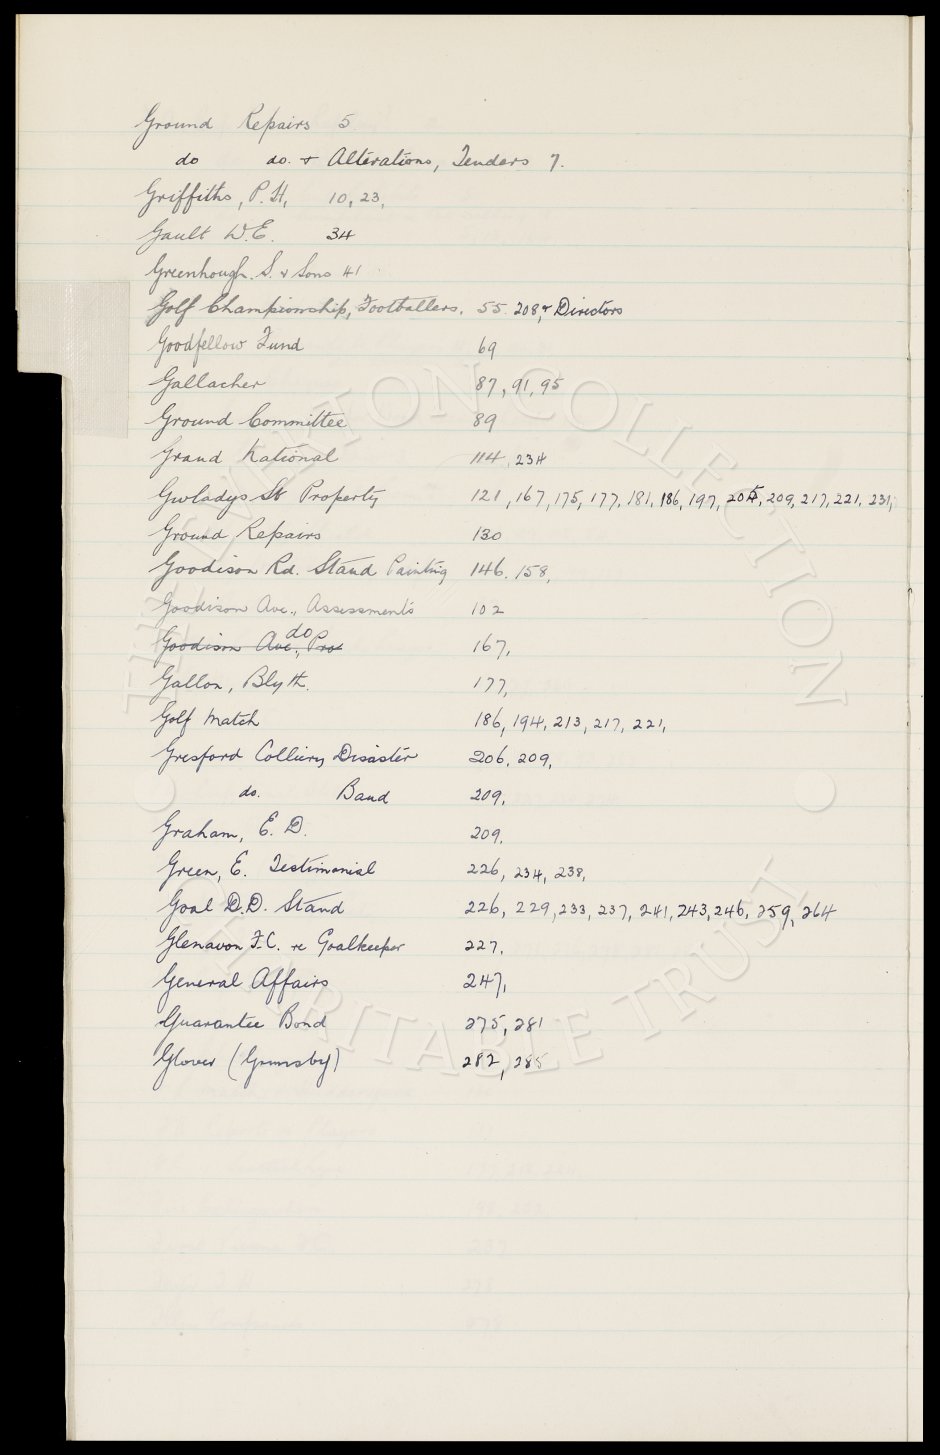 Ground Repairs 5
do do. & Alterations, Tenders 7.
Griffiths, P.H, 10, 23,
Gault W.E. 34
Greenhough. S. & Sons 41
Golf Championship, Footballers. 55. 208, & Directors
Goodfellow Fund 69
Gallacher 87, 91, 95
Ground Committee 89
Grand National 114, 234
Gwladys St Property 121, 167, 175, 177, 181, 186, 197, 205, 209, 217, 221, 231,
Ground Repairs 130
Goodison Rd. Stand Painting 146, 158,
Goodison Ave., Assessments 102
Goodison Ave, Pro do 167,
Gallon, Blyth. 177,
Golf Match 186, 194, 213, 217, 221,
Gresford Colliery Disaster 206, 209,
do. Band 209,
Graham, E. D. 209,
Green, E. Testimonial 226, 234, 238,
Goal D.D. Stand 226, 229, 233, 237, 241, 243, 246, 259, 264
Glenavon F.C. re Goalkeeper 227.
General Affairs 247,
Guarantee Bond 275, 281
Glover (Grimsby) 282, 285
THE EVERTON COLLECTION
CHARITABLE TRUST